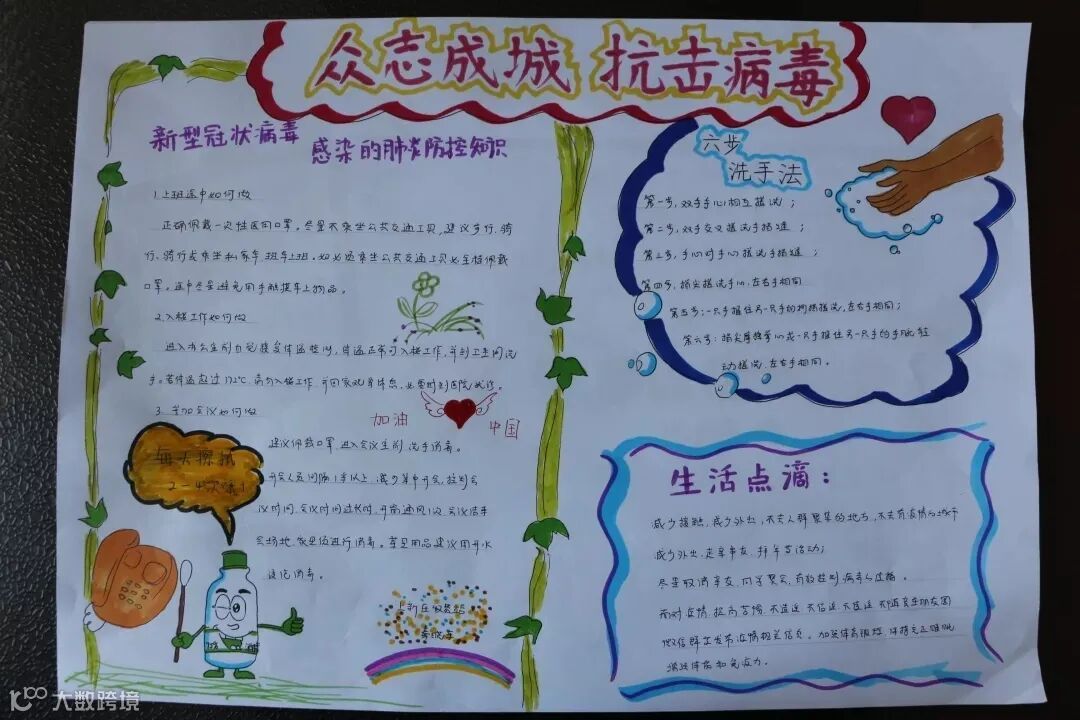 众志成城 抗击病毒
新型冠状病毒
感染的肺炎防控知识
1.上班途中如何做
正确佩戴一次性医用口罩。尽量不乘坐公共交通工具,建议步行、骑
行、骑行或乘坐私家车、班车上班。如必须乘坐公共交通工具必全程佩戴
口罩。途中尽量避免用手触摸车上物品。
2.入楼工作如何做
进入办公室前自觉接受体温检测,体温正常可入楼工作,并到卫生间洗
手。若体温超过37.2℃,请勿入楼工作,并回家观察休息,必要时到医院就诊。
3.参加会议如何做
建议佩戴口罩、进入会议室前洗手消毒。
开会人员间隔1米以上,减少集中开会,控制会
议时间,会议时间过长时,开窗通风1次,会议结束
会场地、家具须进行消毒。茶具用品建议用开水
浸泡消毒。
加油
中国
每天擦拭
2-4次哦!
六步
洗手法
第一步,双手手心相互搓洗;
第二步,双手交叉搓洗手指缝;
第三步,手心对手心搓洗手指缝;
第四步,指尖搓洗手心,左右手相同
第五步:一只手握住另一只手的拇指搓洗,左右手相同;
第六步:指尖摩擦掌心或一只手握住另一只手的手腕轻
动搓洗,左右手相同。
生活点滴:
减少接触,减少外出,不去人群聚集的地方,不去有疫情的城市
减少外出,走亲串友、拜年等活动;
尽量取消亲友、同学聚会,有效控制病毒的传播。
面对疫情,提高警惕,不造谣 不信谣 不传谣 不随意在朋友圈
微信群里发布疫情相关信息。加强体育锻炼,保持充足睡眠
增强体质和免疫力。
大数跨境